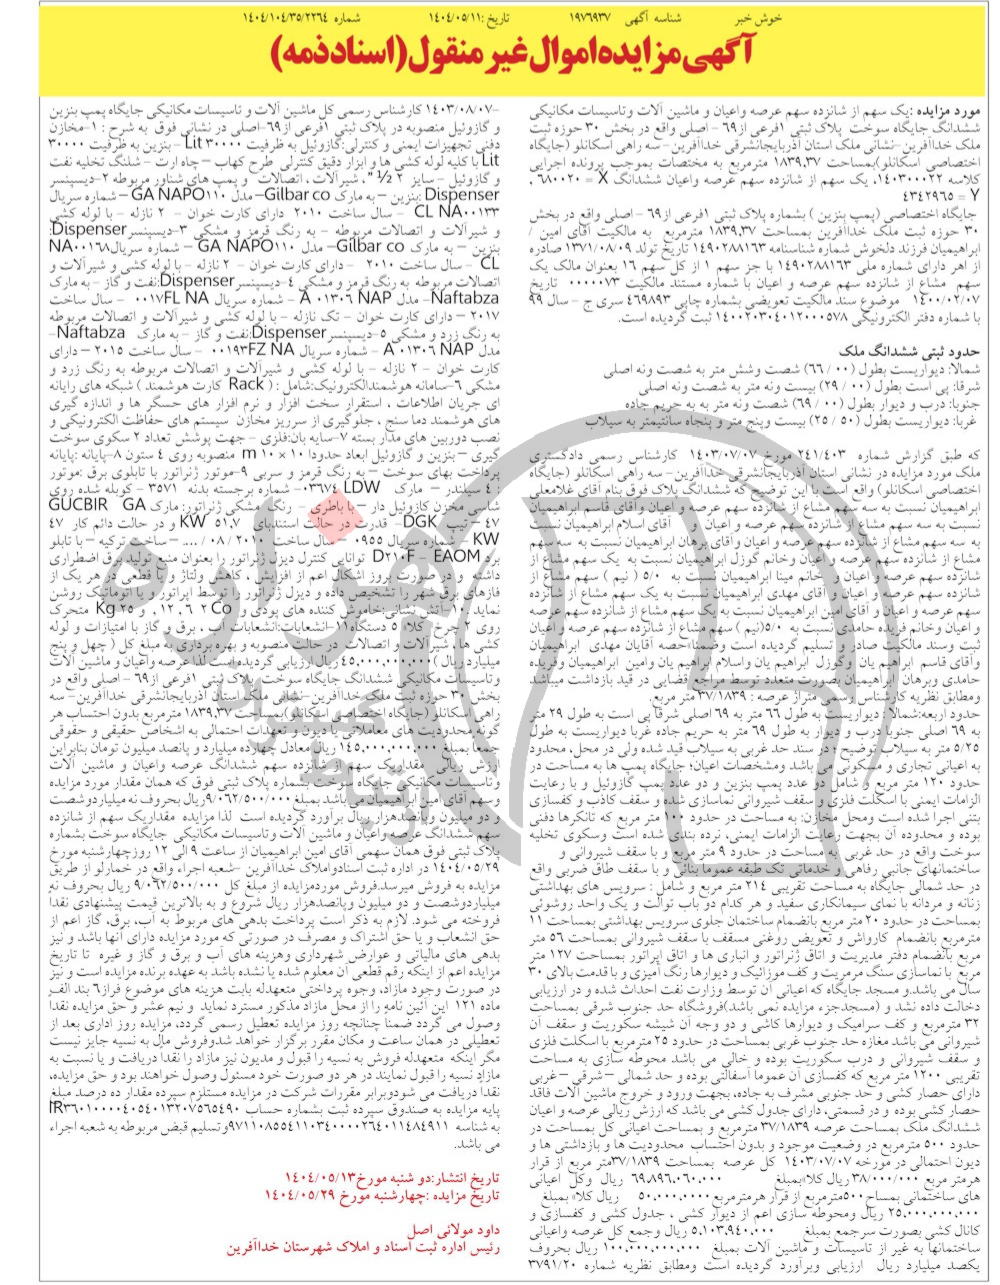 خوش خبر شناسه آگهی ۱۹۷۶۹۳۷ تاریخ :۱۴۰۴/۰۵/۱۱ شماره ۱۴۰۴/۱۰۴/۳۵/۲۲۶۴
آگهی مزایده اموال غیر منقول (اسناد ذمه)
مورد مزایده :یک سهم از شانزده سهم عرصه واعیان و ماشین آلات وتاسیسات مکانیکی
ششدانگ جایگاه سوخت پلاک ثبتی ۱فرعی از۶۹ - اصلی واقع در بخش ۳۰ حوزه ثبت
ملک خداآفرین-نشانی ملک استان آذربایجانشرقی خداآفرین- سه راهی اسکانلو (جایگاه
اختصاصی اسکانلو)بمساحت ۱۸۳۹,۳۷ مترمربع به مختصات بموجب پرونده اجرایی
کلاسه ۱۴۰۳۰۰۰۲۲، یک سهم از شانزده سهم عرصه واعیان ششدانگ X = ۶۸۰۰۲۰ ,
Y = ۴۳۴۲۹۶۵
جایگاه اختصاصی (پمپ بنزین ) بشماره پلاک ثبتی ۱فرعی از۶۹ - اصلی واقع در بخش
۳۰ حوزه ثبت ملک خداآفرین بمساحت ۱۸۳۹,۳۷ مترمربع به مالکیت آقای امین /
ابراهیمیان فرزند دلخوش شماره شناسنامه ۱۴۹۰۲۸۸۱۶۳ تاریخ تولد ۱۳۷۱/۰۸/۰۹ صادره
از اهر دارای شماره ملی ۱۴۹۰۲۸۸۱۶۳ با جز سهم ۱ از کل سهم ۱۶ بعنوان مالک یک
سهم مشاع از شانزده سهم عرصه و اعیان با شماره مستند مالکیت ۰۰۰۰۰۷۳ تاریخ
۱۴۰۰/۰۲/۰۷ موضوع سند مالکیت تعویضی بشماره چاپی ۴۶۹۸۹۳ سری ج - سال ۹۹
با شماره دفتر الکترونیکی ۱۴۰۰۲۰۳۰۴۰۱۲۰۰۰۵۷۸ ثبت گردیده است.
حدود ثبتی ششدانگ ملک
شمالا: دیواریست بطول (۰۰ / ۶۶) شصت وشش متر به شصت ونه اصلی
شرقا: پی است بطول (۰۰ / ۲۹) بیست ونه متر به شصت ونه اصلی
جنوبا: درب و دیوار بطول (۰۰ / ۶۹) شصت ونه متر به به حریم جاده
غربا: دیواریست بطول (۵۰ / ۲۵) بیست وپنج متر و پنجاه سانتیمتر به سیلاب
که طبق گزارش شماره ۲۴۱/۴۰۳ مورخ ۱۴۰۳/۰۷/۰۷ کارشناس رسمی دادگستری
ملک مورد مزایده در نشانی استان آذربایجانشرقی خداآفرین- سه راهی اسکانلو (جایگاه
اختصاصی اسکانلو) واقع است با این توضیح که ششدانگ پلاک فوق بنام آقای غلامعلی
ابراهیمیان نسبت به سه سهم مشاع از شانزده سهم عرصه و اعیان واقای قاسم ابراهیمیان
نسبت به سه سهم مشاع از شانزده سهم عرصه و اعیان و آقای اسلام ابراهیمیان نسبت
به سه سهم مشاع از شانزده سهم عرصه و اعیان واقای برهان ابراهیمیان نسبت به سه سهم
مشاع از شانزده سهم عرصه و اعیان وخانم گوزل ابراهیمیان نسبت به یک سهم مشاع از
شانزده سهم عرصه واعیان و خانم مینا ابراهیمیان نسبت به ۵/۰ ( نیم ) سهم مشاع از
شانزده سهم عرصه و اعیان و اقای مهدی ابراهیمیان نسبت به یک سهم مشاع از شانزده
سهم عرصه و اعیان و اقای امین ابراهیمیان نسبت به یک سهم مشاع از شانزده سهم عرصه
و اعیان وخانم فریده حامدی نسبت به ۵/۰(نیم ) سهم مشاع از شانزده سهم عرصه و اعیان
ثبت وسند مالکیت صادر و تسلیم گردیده است وضمنا حصه آقایان مهدی ابراهیمیان
وآقای قاسم ابراهیم یان وگوزل ابراهیم یان واسلام ابراهیم یان وامین ابراهیمیان وفریده
حامدی وبرهان ابراهیمیان بصورت متعدد توسط مراجع قضایی در قید بازداشت میباشد
ومطابق نظریه کارشناس متراژ عرصه : ۳۷/۱۸۳۹ متر مربع
حدود اربعه:شمالا دیواریست به طول ۶۶ متر به ۶۹ اصلی شرقا پی است به طول ۲۹ متر
به ۶۹ اصلی جنوبا درب و دیوار به طول ۶۹ متر به حریم جاده غربا دیواریست به طول
۵/۲۵ متر به سیلاب توضیح در سند حد غربی به سیلاب قید شده ولی در محل، محدود
به اعیانی تجاری و مسکونی می باشد ومشخصات اعیان؛ جایگاه پمپ ها به مساحت در
حدود ۱۲۰ متر مربع و شامل دو عدد پمپ بنزین و دو عدد پمپ گازوئیل و با رعایت
الزامات ایمنی با اسکلت فلزی و سقف شیروانی نماسازی شده و سقف کاذب و کفسازی
بتنی اجرا شده است ومحل مخازن: به مساحت در حدود ۱۰۰ متر مربع که تانکرها دفنی
بوده و محدوده آن بجهت رعایت الزامات ایمنی، نرده بندی شده است وسکوی تخلیه
سوخت واقع در حد غربی به مساحت در حدود ۹ متر مربع و با سقف شیروانی و
ساختمانهای جانبی رفاهی و خدماتی تک طبقه عموما بنائی و با سقف طاق ضربی واقع
در حد شمالی جایگاه به مساحت تقریبی ۲۱۴ متر مربع و شامل : سرویس های بهداشتی
زنانه و مردانه با نمای سیمانکاری سفید و هر کدام دو باب توالت و یک واحد روشوئی
بمساحت در حدود ۲۰ متر مربع بانضمام ساختمان جلوی سرویس بهداشتی بمساحت ۱۱
مترمربع بانضمام کارواش و تعویض روغنی مسقف با سقف شیروانی بمساحت ۵۶ متر
مربع بانضمام دفتر مدیریت و اتاق ژنراتور و انباری ها و اتاق اپراتور بمساحت ۱۲۷ متر
مربع با نماسازی سنگ مرمریت و کف موزائیک و دیوارها رنگ آمیزی و با قدمت بالای ۳۰
سال می باشد.و مسجد جایگاه که اعیانی آن توسط وزارت نفت احداث شده و در ارزیابی
دخالت داده نشد و (مسجدجزء مزایده نمی باشد)فروشگاه حد جنوب شرقی بمساحت
۳۲ مترمربع و کف سرامیک و دیوارها کاشی و دو وجه آن شیشه سکوریت و سقف آن
شیروانی می باشد مغازه حد جنوب غربی بمساحت در حدود ۲۵ مترمربع با اسکلت فلزی
و سقف شیروانی و درب سکوریت بوده و خالی می باشد محوطه سازی به مساحت
تقریبی ۱۲۰۰ متر مربع که کفسازی آن عموما آسفالتی بوده و حد شمالی –شرقی –غربی
دارای حصار کشی و حد جنوبی مشرف به جاده، بجهت ورود و خروج ماشین آلات فاقد
حصار کشی بوده و در قسمتی، دارای جدول کشی می باشد که ارزش ریالی عرصه و اعیان
ششدانگ ملک بمساحت عرصه ۳۷/۱۸۳۹ مترمربع و بمساحت اعیانی کل بمساحت در
حدود ۵۰۰ مترمربع در وضعیت موجود و بدون احتساب محدودیت ها و بازداشتی ها و
دیون احتمالی در مورخه ۱۴۰۳/۰۷/۰۷ کل عرصه بمساحت ۳۷/۱۸۳۹متر مربع از قرار
هرمتر مربع ۳۸/۰۰۰/۰۰۰ ریال کلا"بمبلغ ۶۹,۸۹۶,۰۶۰,۰۰۰ ریال وکل اعیانی
های ساختمانی بمساح ۵۰۰مترمربع از قرار هرمترمربع ۵۰,۰۰۰,۰۰۰ ریال کلا" بمبلغ
۲۵,۰۰۰,۰۰۰,۰۰۰ ریال ومحوطه سازی اعم از دیوار کشی ، جدول کشی و کفسازی و
کانال کشی بصورت سرجمع بمبلغ ۵,۱۰۳,۹۴۰,۰۰۰ ریال وجمع کل عرصه واعیانی
ساختمانها به غیر از تاسیسات و ماشین آلات بمبلغ ۱۰۰,۰۰۰,۰۰۰,۰۰۰ ریال بحروف
یکصد میلیارد ریال ارزیابی وبرآورد گردیده است ومطابق نظریه شماره ۳۷۹۱/۲۰
-۱۴۰۳/۰۸/۰۷ کارشناس رسمی کل ماشین آلات و تاسیسات مکانیکی جایگاه پمپ بنزین
و گازوئیل منصوبه در پلاک ثبتی ۱فرعی از۶۹-اصلی در نشانی فوق به شرح : ۱-مخازن
دفنی تجهیزات ایمنی و کنترلی:گازوئیل به ظرفیت ۳۰۰۰۰ Lit - بنزین به ظرفیت ۳۰۰۰۰
Lit با کلیه لوله کشی ها و ابزار دقیق کنترلی طرح کهاب – چاه ارت – شلنگ تخلیه نفت
و گازوئیل – سایز ½ ۲ "، شیرآلات ، اتصالات و پمپ های شناور مربوطه ۲-دیسپنسر
Dispenser :بنزین – به مارک Gilbar co– مدل GA NAPO۱۱۰ – شماره سریال
CL NA۰۰۱۳۳ – سال ساخت ۲۰۱۰ دارای کارت خوان – ۲ نازله – با لوله کشی
و شیرآلات و اتصالات مربوطه – به رنگ قرمز و مشکی ۳-دیسپنسرDispenser:
بنزین – به مارک Gilbar co– مدل GA NAPO۱۱۰ – شماره سریالNA۰۰۱۶۸
CL – سال ساخت ۲۰۱۰ – دارای کارت خوان – ۲ نازله – با لوله کشی و شیرآلات و
اتصالات مربوطه به رنگ قرمز و مشکی ۴-دیسپنسرDispenser:نفت و گاز – به مارک
Naftabza– مدل A ۰۱۳۰۶ NAP – شماره سریال ۰۰۱۷FL NA – سال ساخت
۲۰۱۷ – دارای کارت خوان – تک نازله – با لوله کشی و شیرآلات و اتصالات مربوطه
به رنگ زرد و مشکی ۵-دیسپنسرDispenser:نفت و گاز – به مارک Naftabza–
مدل A ۰۱۳۰۶ NAP – شماره سریال ۰۰۱۹۳FZ NA – سال ساخت ۲۰۱۵ – دارای
کارت خوان – ۲ نازله – با لوله کشی و شیرآلات و اتصالات مربوطه به رنگ زرد و
مشکی ۶-سامانه هوشمندالکترونیک:شامل : ( Rack کارت هوشمند ) شبکه های رایانه
ای جریان اطلاعات ، استقرار سخت افزار و نرم افزار های حسگر ها و اندازه گیری
های هوشمند دما سنج ، جلوگیری از سرریز مخازن سیستم های حفاظت الکترونیکی و
نصب دوربین های مدار بسته ۷-سایه بان:فلزی – جهت پوشش تعداد ۲ سکوی سوخت
گیری –بنزین و گازوئیل ابعاد حدودا m ۱۰ × ۱۰ منصوبه روی ۴ ستون ۸-پایانه :پایانه
پرداخت بهای سوخت – به رنگ قرمز و سربی ۹-موتور ژنراتور با تابلوی برق :موتور
: ۴ سیلندر – مارک ۰۳۹۷۴ LDW– شماره برجسته بدنه ۳۵۷۱ – کوبله شده روی
شاسی مخزن گازوئیل دار – با باطری – رنگ مشکی ژنراتور: مارک GUCBIR GA
۴۷ – تیپ DGK – قدرت در حالت استندبای KW ۵۱,۷ و در حالت دائم کار ۴۷
KW – شماره سریال ۰۹۵۵ – سال ساخت ۲۰۱۰ / ۰۸ /.... – ساخت ترکیه – با تابلو
برق D۲۱۰F – EAOM توانایی کنترل دیزل ژنراتور را بعنوان منبع تولید برق اضطراری
داشته و در صورت بروز اشکال اعم از افزایش ، کاهش ولتاژ و یا قطعی در هر یک از
فازهای برق شهر را تشخیص داده و دیزل ژنراتور را توسط اپراتور و یا اتوماتیک روشن
نماید ۱۰-آتش نشانی:خاموش کننده های پودی و Co ۲ ۶ , ۱۲ و ۲۵ Kg متحرک
روی ۲ چرخ کلا" ۵ دستگاه ۱۱-انشعابات:انشعابات آب ، برق و گاز با امتیازات و لوله
کشی ها، شیرآلات و اتصالات در حالت منصوبه و بهره برداری به مبلغ کل ( چهل و پنج
میلیارد ریال ) ۴۵,۰۰۰,۰۰۰,۰۰۰ ریال ارزیابی گردیده است لذا عرصه واعیان و ماشین آلات
وتاسیسات مکانیکی ششدانگ جایگاه سوخت پلاک ثبتی ۱فرعی از۶۹ - اصلی واقع در
بخش ۳۰ حوزه ثبت ملک خداآفرین-نشانی ملک استان آذربایجانشرقی خداآفرین- سه
راهی اسکانلو (جایگاه اختصاصی اسکانلو)بمساحت ۱۸۳۹,۳۷ مترمربع بدون احتساب هر
گونه محدودیت های معاملاتی یا دیون و تعهدات احتمالی به اشخاص حقیقی و حقوقی
جمعا بمبلغ ۱۴۵,۰۰۰,۰۰۰,۰۰۰ ریال معادل چهارده میلیارد و پانصد میلیون تومان بنابراین
ارزش ریالی مقداریک سهم از شانزده سهم ششدانگ عرصه واعیان و ماشین آلات
وتاسیسات مکانیکی جایگاه سوخت بشماره پلاک ثبتی فوق که همان مقدار مورد مزایده
وسهم آقای امین ابراهیمیان می باشد بمبلغ ۹/۰۶۲/۵۰۰/۰۰۰ریال بحروف نه میلیاردوشصت
و دو میلیون وپانصدهزار ریال برآورد گردیده است لذا مزایده مقداریک سهم از شانزده
سهم ششدانگ عرصه واعیان و ماشین آلات وتاسیسات مکانیکی جایگاه سوخت بشماره
پلاک ثبتی فوق همان سهمی آقای امین ابراهیمیان از ساعت ۹ الی ۱۲ روزچهارشنبه مورخ
۱۴۰۴/۰۵/۲۹ در اداره ثبت اسنادواملاک خداآفرین –شعبه اجراء واقع در خمارلو از طریق
مزایده به فروش میرسد.فروش موردمزایده از مبلغ کل ۹/۰۶۲/۵۰۰/۰۰۰ ریال بحروف نه
میلیاردوشصت و دو میلیون وپانصدهزار ریال شروع و به بالاترین قیمت پیشنهادی نقدا
فروخته می شود. لازم به ذکر است پرداخت بدهی های مربوط به آب، برق، گاز اعم از
حق انشعاب و یا حق اشتراک و مصرف در صورتی که مورد مزایده دارای آنها باشد و نیز
بدهی های مالیاتی و عوارض شهرداری وهزینه های آب و برق و گاز و غیره تا تاریخ
مزایده اعم از اینکه رقم قطعی آن معلوم شده یا نشده باشد به عهده برنده مزایده است و نیز
در صورت وجود مازاد، وجوه پرداختی متعهدله بابت هزینه های موضوع فراز۶ بند الف
ماده ۱۲۱ این آئین نامه را از محل مازاد مذکور مسترد نماید و نیم عشر و حق مزایده نقدا
وصول می گردد ضمناً چنانچه روز مزایده تعطیل رسمی گردد، مزایده روز اداری بعد از
تعطیلی در همان ساعت و مکان مقرر برگزار خواهد شدوفروش مال به نسیه جایز نیست
مگر اینکه متعهدله فروش به نسیه را قبول و مدیون نیز مازاد را نقدا دریافت و یا نسبت به
مازاد نسیه را قبول نمایند در هر دو صورت خود مسئول وصول خواهند بود و حق مزایده،
نقدا دریافت می شودوبرابر مقررات شرکت در مزایده مستلزم سپرده مقدار ده درصد مبلغ
پایه مزایده به صندوق سپرده ثبت بشماره حساب IR۳۶۰۱۰۰۰۰۴۰۵۴۰۱۳۲۰۷۵۶۵۴۹۰
به شناسه ۹۷۱۱۰۸۵۵۴۱۱۰۳۴۰۰۰۰۲۶۴۰۱۱۴۸۴۹۱۱وتسلیم قبض مربوطه به شعبه اجراء
می باشد.
تاریخ انتشار:دو شنبه مورخ۱۴۰۴/۰۵/۱۳
تاریخ مزایده :چهارشنبه مورخ ۱۴۰۴/۰۵/۲۹
داود مولائی اصل
رئیس اداره ثبت اسناد و املاک شهرستان خداآفرین